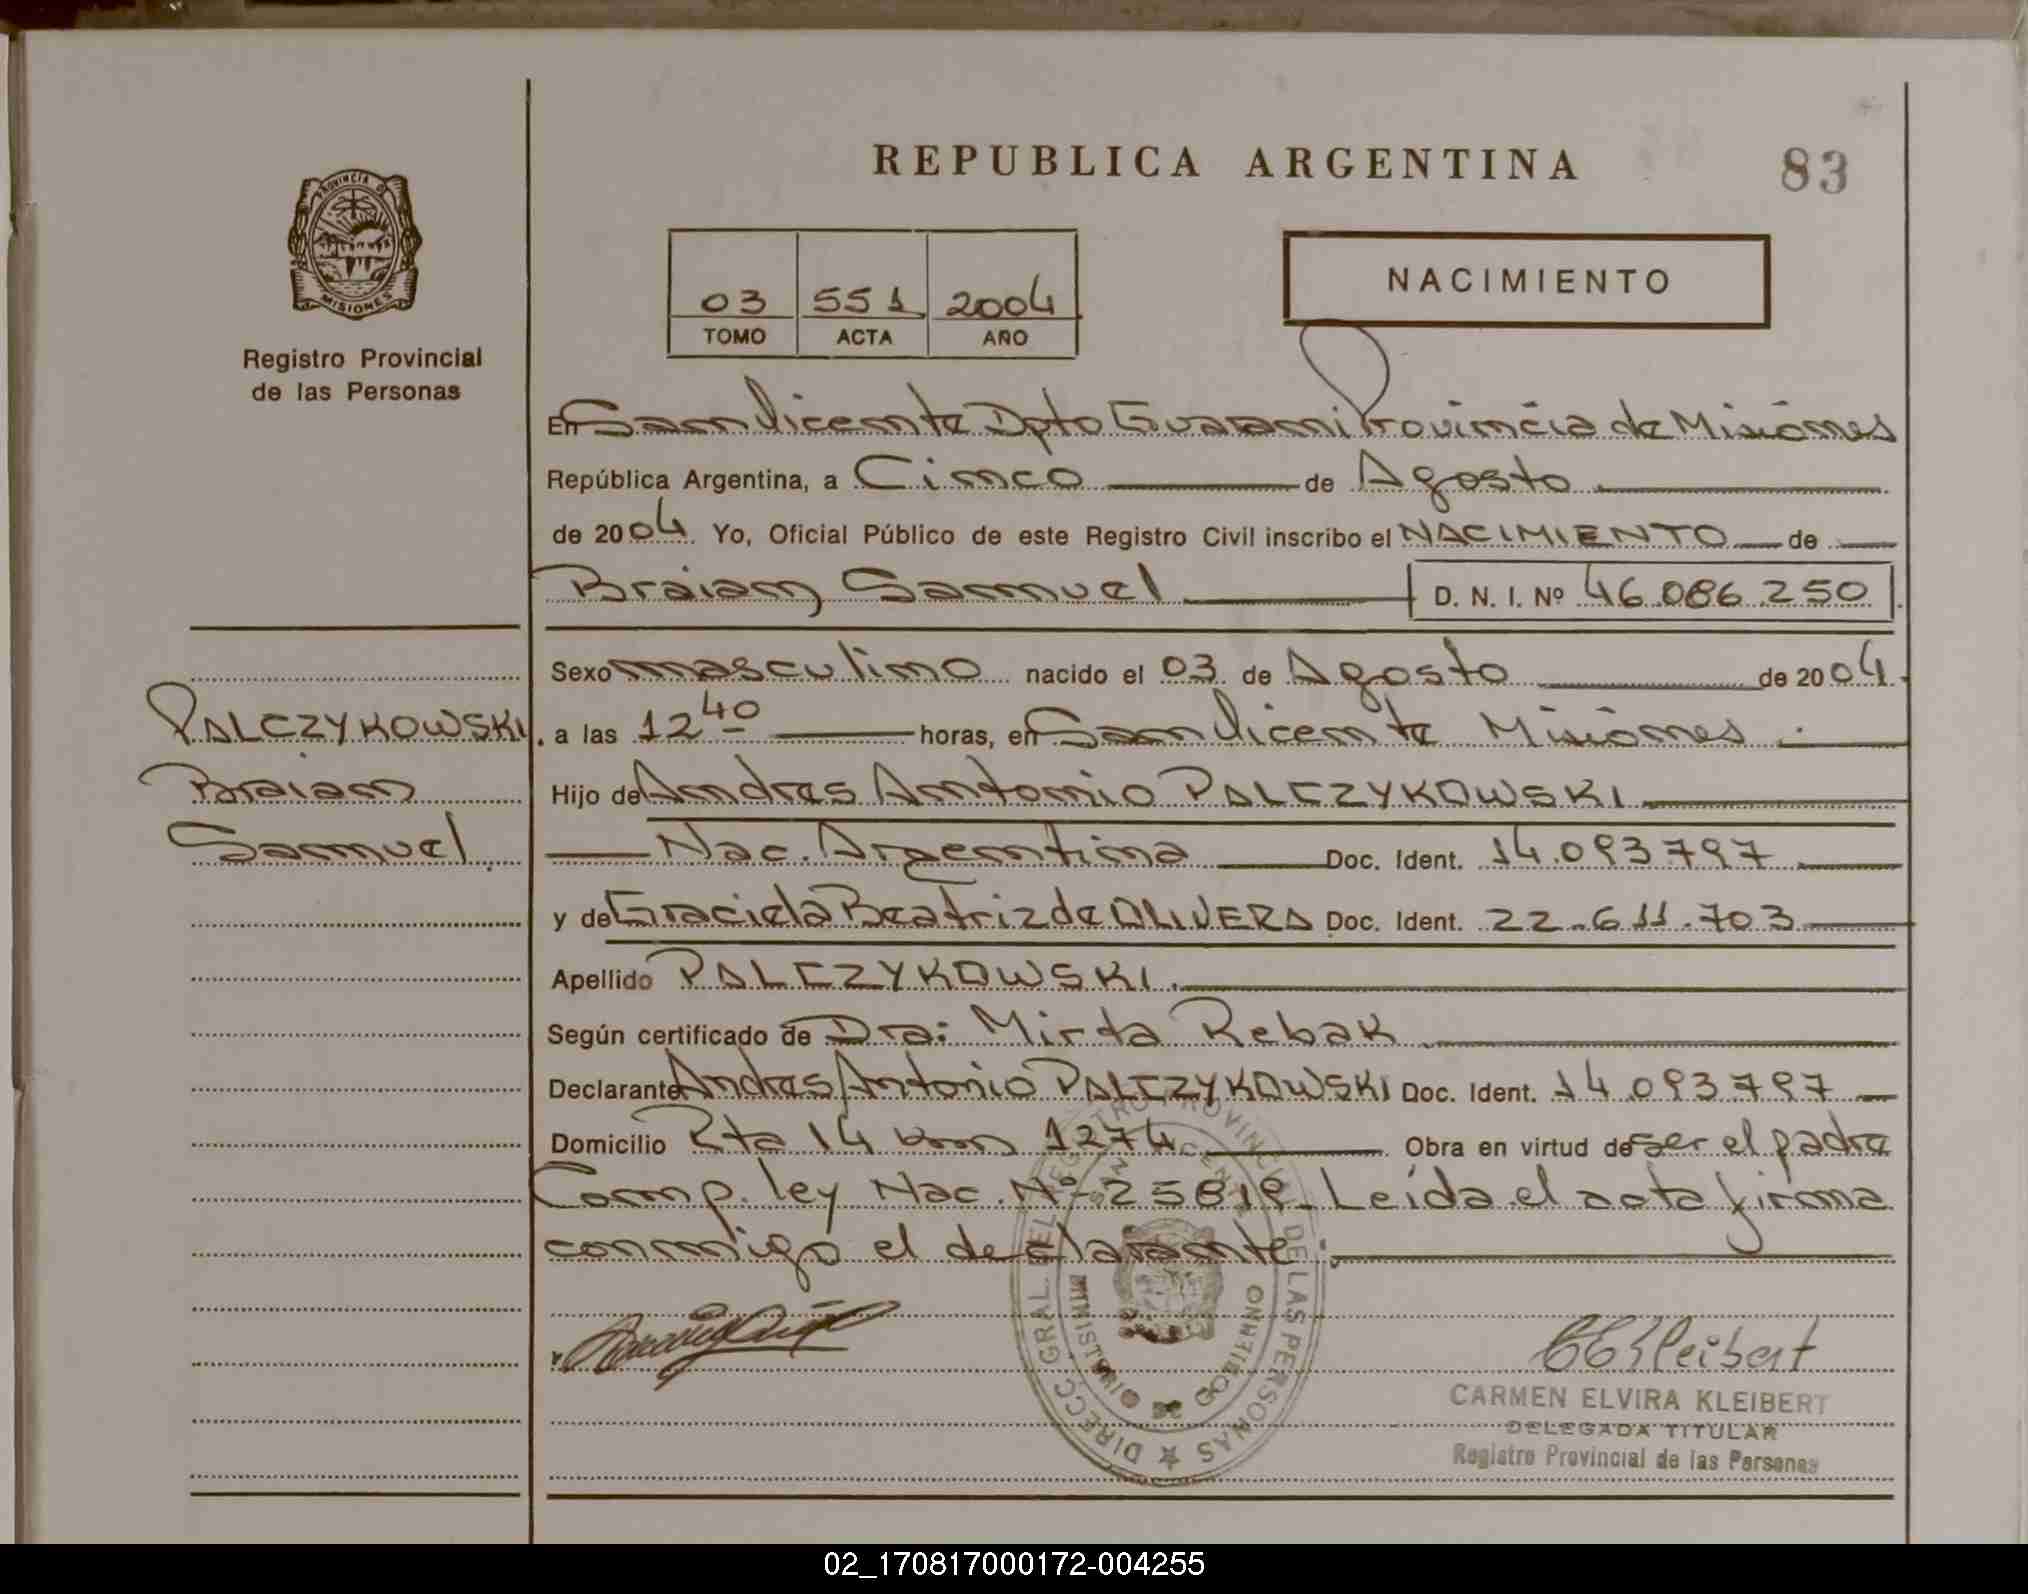 REPUBLICA ARGENTINA
83
PROVINCIA DE
MISIONES
Registro Provincial
de las Personas
03 551 2004
TOMO ACTA AÑO
NACIMIENTO
En San Vicente Dpto Guarani Provincia de Misiones
República Argentina, a Cinco de Agosto
de 2004 Yo, Oficial Público de este Registro Civil inscribo el NACIMIENTO de
Braian Samuel D. N. I. Nº 46.086.250
Sexo masculino nacido el 03 de Agosto de 2004
PALCZYKOWSKI
a las 12 40 horas, en San Vicente Misiones
Braian
Hijo de Andres Antonio PALCZYKOWSKI
Samuel
Nac. Argentina Doc. Ident. 14.093.797
y de Graciela Beatriz de OLIVERA Doc. Ident. 22.611.703
Apellido PALCZYKOWSKI
Según certificado de Dra: Mirta Rebak
Declarante Andres Antonio PALCZYKOWSKI Doc. Ident. 14.093.797
Domicilio Rta 14 km 1274 Obra en virtud de ser el padre
Comp. ley Nac. Nº 25819 Leída el acta firma
conmigo el declarante.
DIRECC GRAL DEL REGISTRO PROVINCIAL DE LAS PERSONAS
SAN VICENTE
MINISTERIO DE GOBIERNO
CEKleibert
CARMEN ELVIRA KLEIBERT
DELEGADA TITULAR
Registro Provincial de las Personas
02_170817000172-004255